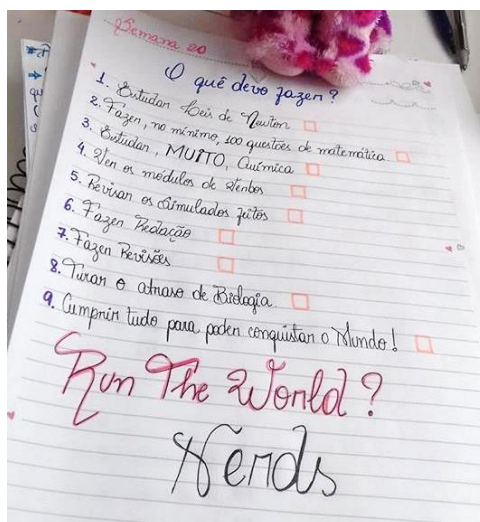 Semana 20
O quê devo fazer?
1. Estudar Leis de Newton
2. Fazer, no mínimo, 100 questões de matemática
3. Estudar, MUITO, Química
4. Ver os módulos de Verbos
5. Revisar os Simulados feitos
6. Fazer Redação
7. Fazer Revisões
8. Tirar o atraso de Biologia
9. Cumprir tudo para poder conquistar o Mundo!
Run The World?
Nerds